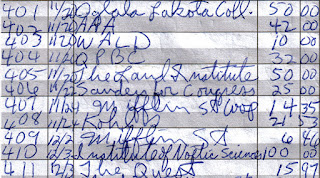 401 11/20 Oglala Lakota Coll. 50 00
402 11/20 AAA 42 00
403 11/20 WALD 10 00
404 11/20 QPBC 32 00
405 11/20 The Land Institute 50 00
406 11/22 Sauden for Congress 25 00
407 11/24 Mifflin St Coop 14 35
408 11/24 Kohl's 21 53
409 12/2 Mifflin St 6 46
410 12/3 Institute of Noetic Sciences 100 00
411 12/3 The Quest 15 97